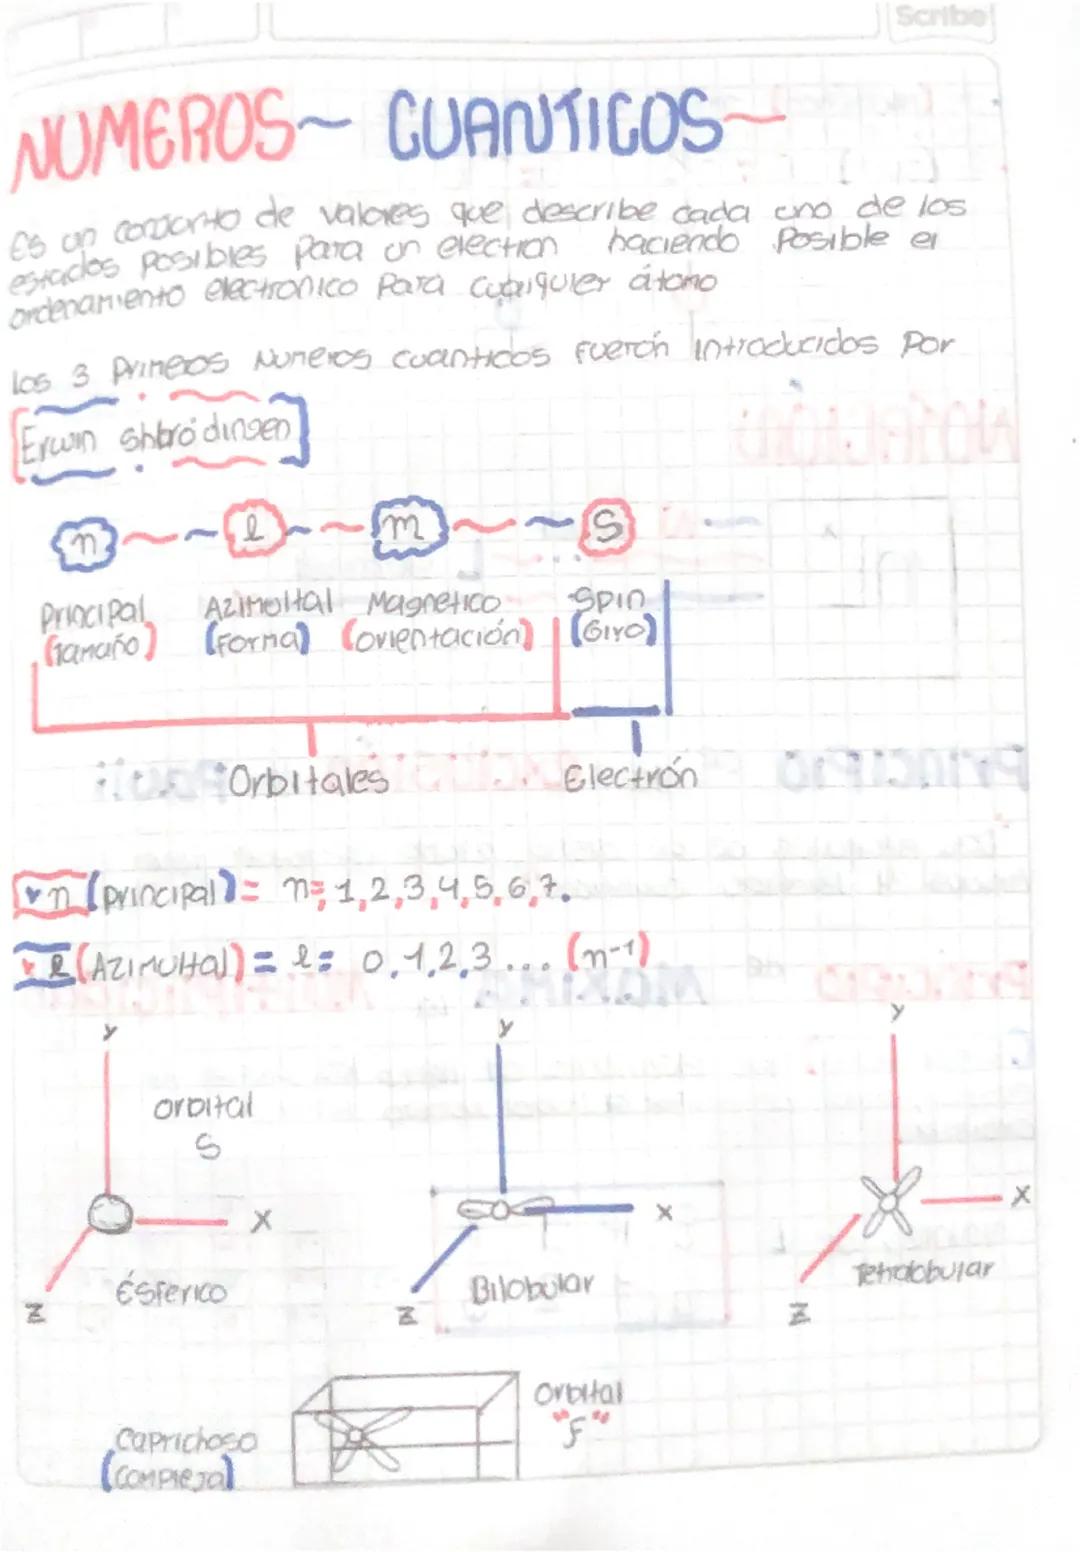 Scribe
NUMEROS~ CUANTICOS~
Es un conjunto de valores que describe cada uno de los
estados posibles para un electron haciendo posible el
ordenamiento electronico para cualquier átomo
los 3 primeros Numeros cuanticos fueron introducidos por
Erwin shbrödingen
n ~ ~ l ~ ~ m ~ ~ S
Principal Azimultal Magnetico Spin
(Tamaño) (Forma) (orientación) (Giro)
Orbitales Electrón
n (principal) = n= 1,2,3,4,5,6,7.
l (Azimultal) = l= 0,1,2,3... (n-1)
Y Y Y
orbital
S
X X X
Ésferico Bilobular Tetralobular
Z Z Z
Orbital
"F"
Caprichoso
(compleja)